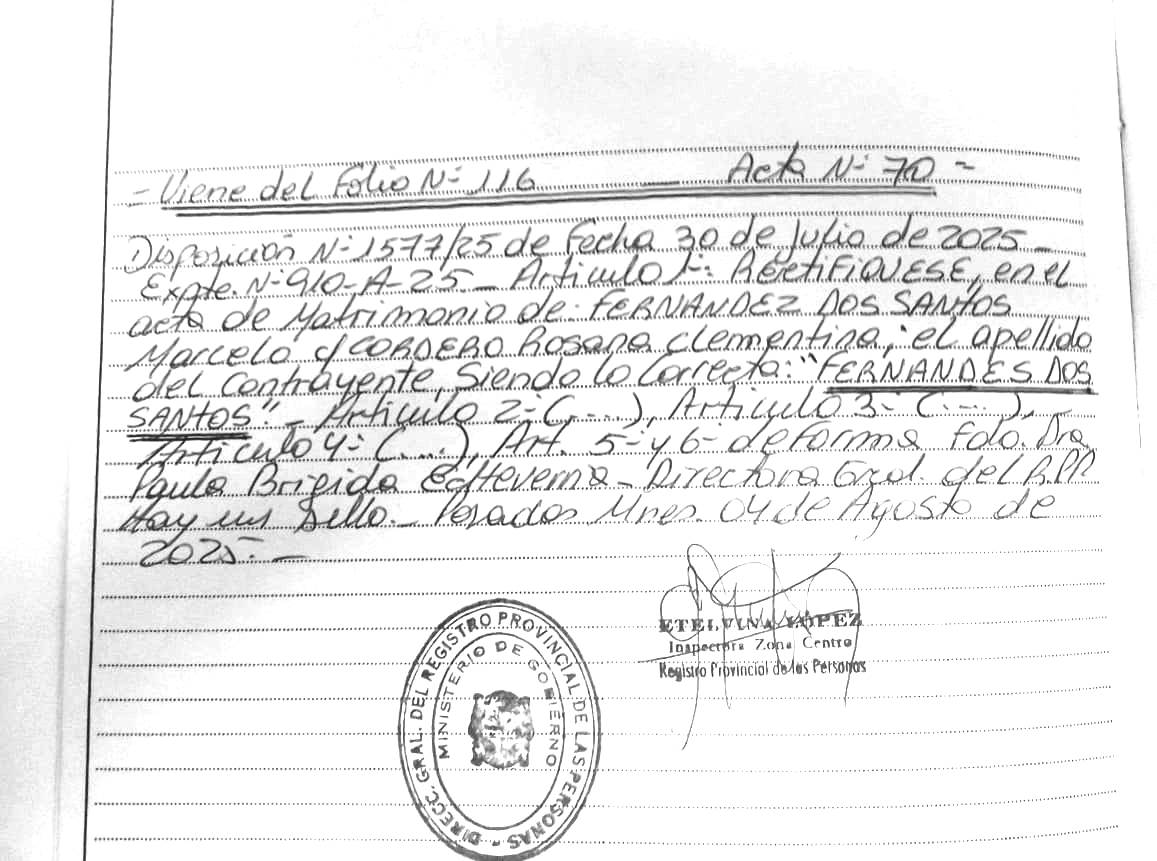 - Viene del Folio N° 116 — Acta N° 70 -
Disposición N° 1577/25 de Fecha 30 de Julio de 2025 -
Expte. N° 910-A-25 - Articulo 1°: RECTIFIQUESE, en el
acta de Matrimonio de: FERNANDEZ DOS SANTOS
Marcelo c/ CORDERO Rosana Clementina; el apellido
del Contrayente, Siendo lo Correcto: "FERNANDES DOS
SANTOS" - Articulo 2° (....), Articulo 3° (....), -
Articulo 4° (....), Art. 5° y 6° de Forma Fdo. Dra.
Paula Brigida Echeverria - Directora Gral. del R.P.P.
Hay un Sello - Posadas Mnes. 04 de Agosto de
2025. -
ETELVINA LOPEZ
Inspectora Zona Centro
Registro Provincial de las Personas
DIRECC. GRAL. DEL REGISTRO PROVINCIAL DE LAS PERSONAS -
MINISTERIO DE GOBIERNO